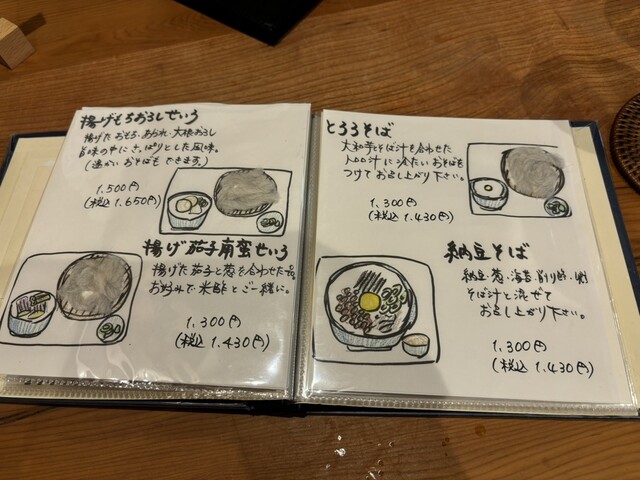 揚げもちおろしせいろ
揚げたおもち・あられ・大根おろし
旨味の中にさっぱりとした風味。
(温かいおそばもできます。)
1,500円
(税込 1,650円)
揚げ茄子南蛮せいろ
揚げた茄子と葱を合わせた一品。
お好みで米酢とご一緒に。
1,300円
(税込 1,430円)
とろろそば
大和芋とそば汁を合わせた
とろろ汁に冷たいおそばを
つけてお召し上がり下さい。
1,300円
(税込 1,430円)
納豆そば
納豆・葱・海苔・削り節・卵
そば汁と混ぜて
お召し上がり下さい。
1,300円
(税込 1,430円)